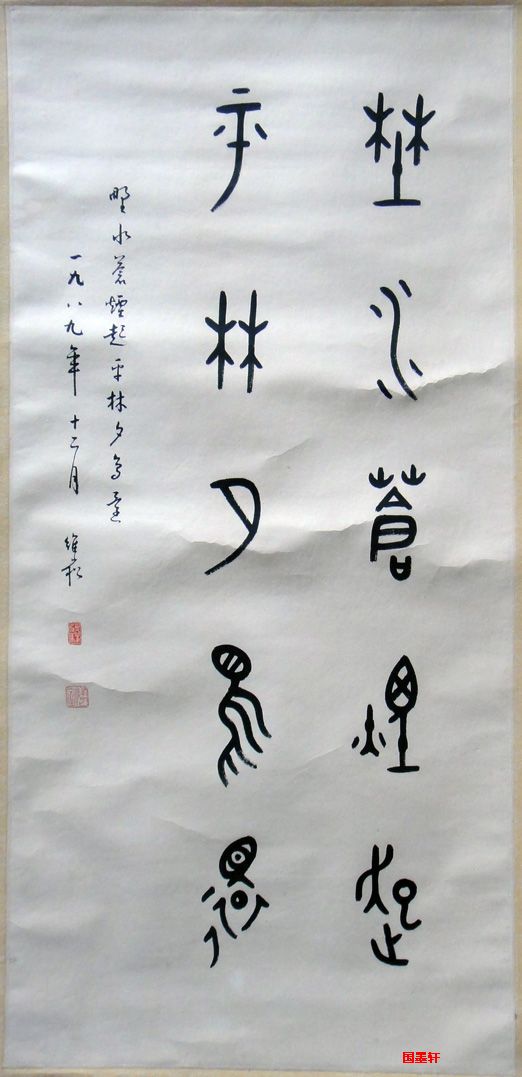 埜水蒼煙起
平林夕鳥還
野水蒼煙起平林夕鳥還
一九八九年十二月 維崧
国墨轩